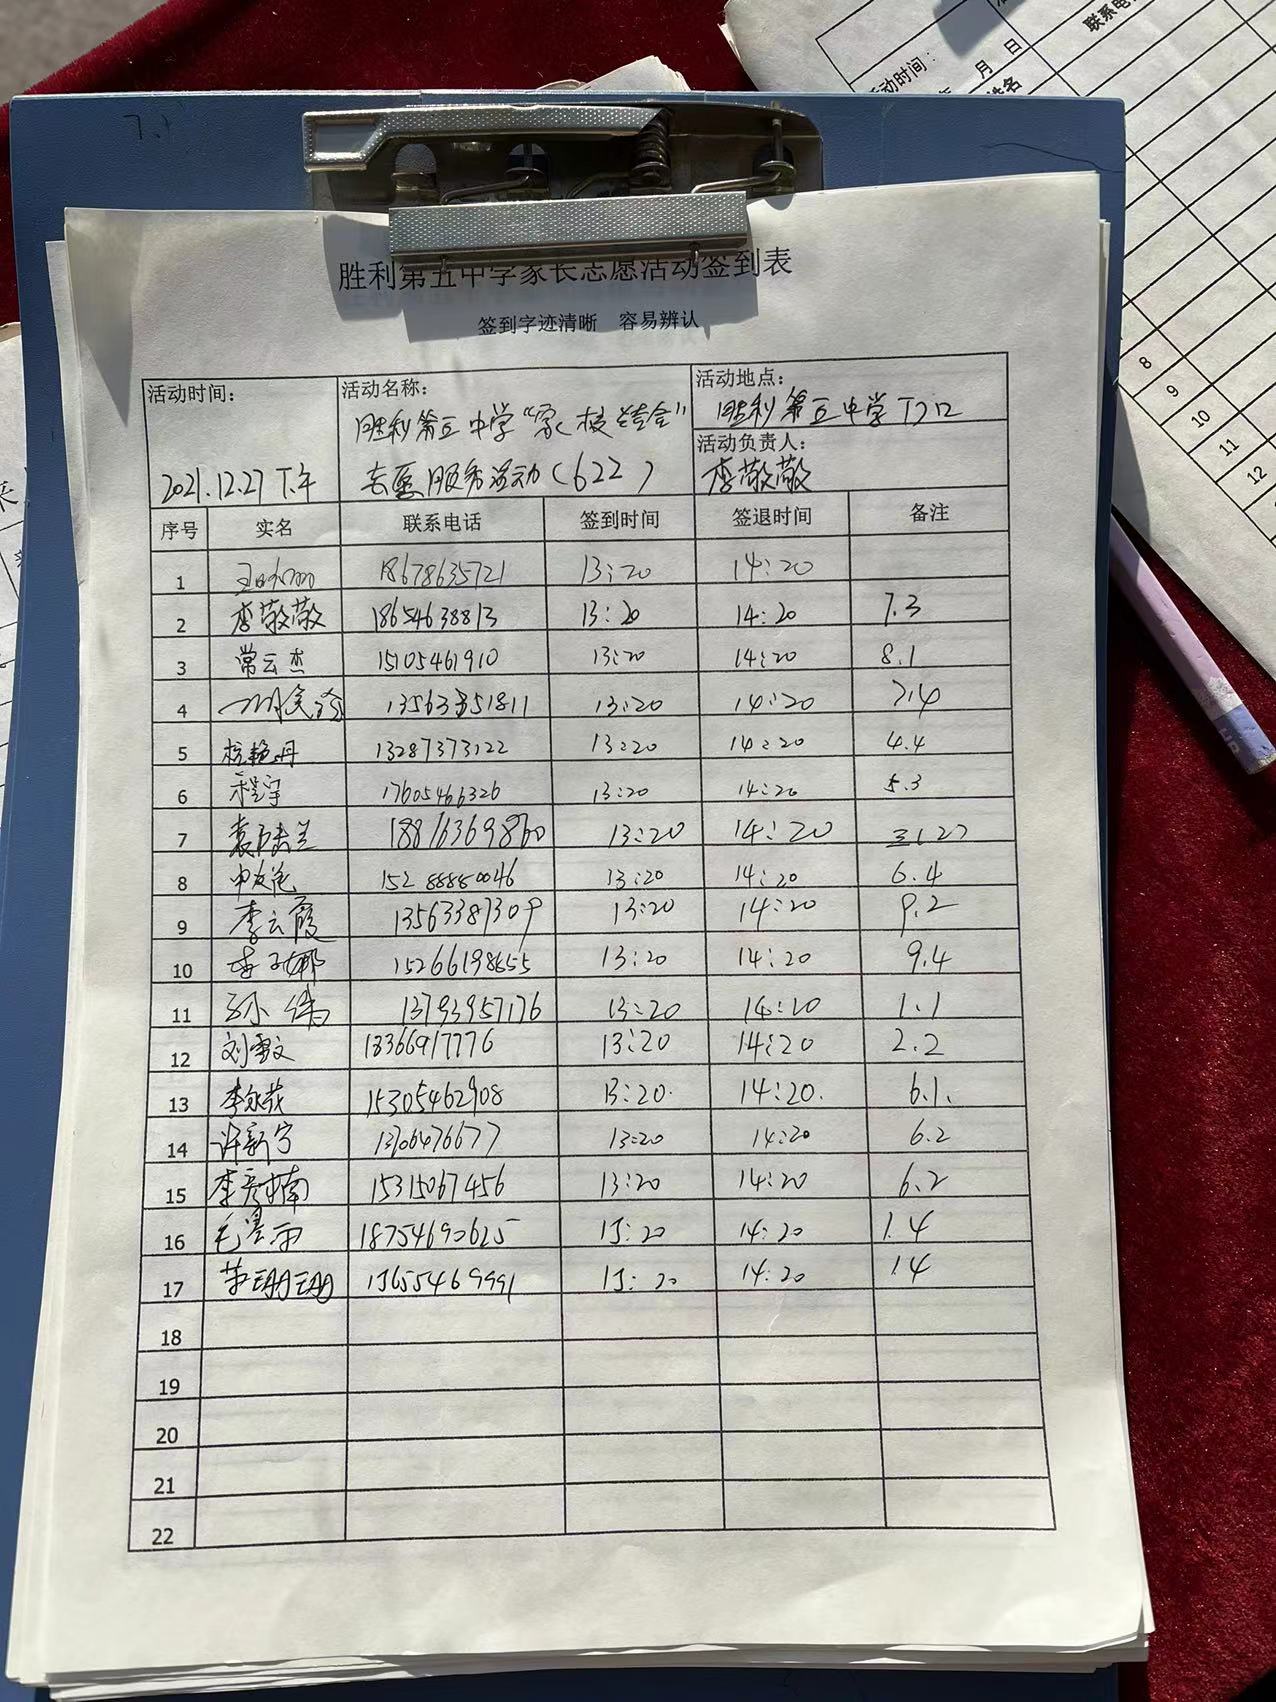 胜利第五中学家长志愿活动签到表
签到字迹清晰 容易辨认
活动时间: 活动名称: 活动地点:
胜利第五中学“家校结合” 胜利第五中学门口
活动负责人:
2021.12.27下午 志愿服务活动(622) 李敬敬
序号 实名 联系电话 签到时间 签退时间 备注
1 18678635721 13:20 14:20
2 李敬敬 18654638813 13:20 14:20 7.3
3 常云杰 15105461910 13:20 14:20 8.1
4 13:20 14:20 7.4
5 艳丹 13287373122 13:20 14:20 4.4
6 程宇 17605466326 13:20 14:20 5.3
7 13:20 14:20
8 15288880046 13:20 14:20 6.4
9 李云霞 13563387309 13:20 14:20 9.2
10 李 娜 15266198655 13:20 14:20 9.4
11 孙伟 13793957176 13:20 14:20 1.1
12 刘雪文 18366917776 13:20 14:20 2.2
13 李 15305462908 13:20. 14:20. 6.1.
14 许新宁 13706476677 13:20 14:20 6.2
15 李彦楠 15315067456 13:20 14:20 6.2
16 毛 18754690625 13:20 14:20 1.4
17 珊珊 13655469991 13:20 14:20 1.4
18
19
20
21
22
活动时间:
年 月 日
姓名
8
9
10
11
12